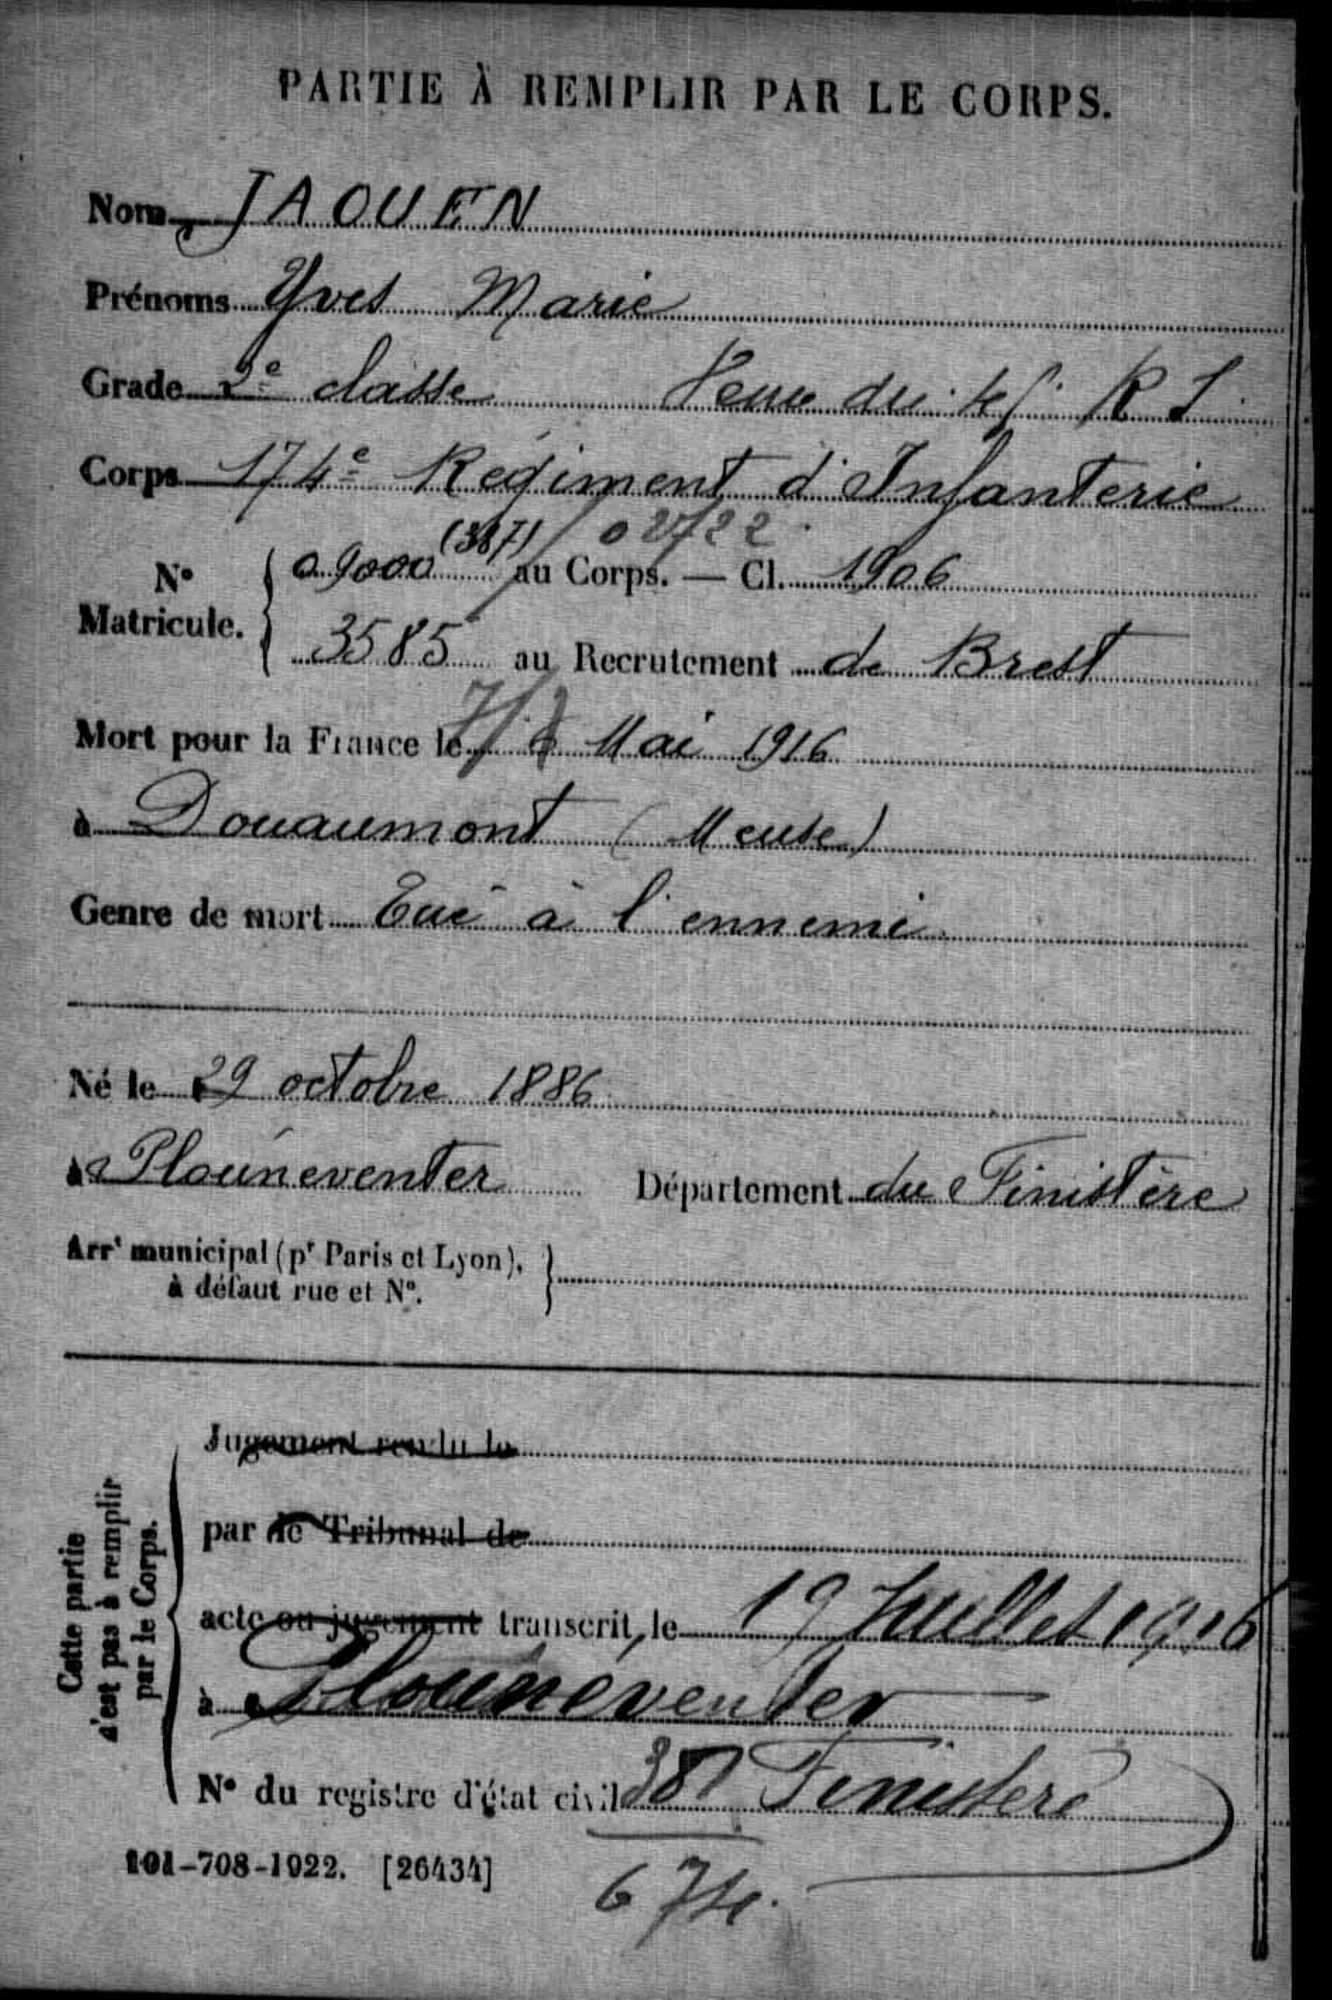 PARTIE À REMPLIR PAR LE CORPS.
Nom JAOUEN
Prénoms Yves Marie
Grade 2e classe Venu du
Corps 174e Régiment d'Infanterie
(387) 02722
N° Matricule. 09000 au Corps. — Cl. 1906
3585 au Recrutement de Brest
Mort pour la France le 7 Mai 1916
à Douaumont (Meuse)
Genre de mort Tué à l'ennemi
Né le 29 octobre 1886
à Plounéventer Département du Finistère
Arrt municipal (pr Paris et Lyon),
à défaut rue et N°.
Cette partie
n'est pas à remplir
par le Corps.
Jugement rendu le
par le Tribunal de
acte ou jugement transcrit, le 19 Juillet 1916
à Plounéventer
N° du registre d'état civil Finistère
101-708-1922. [26434]